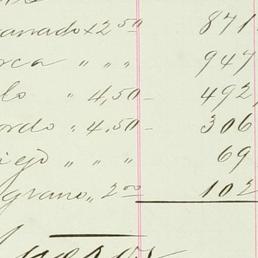 anado x 2 50 871
rca " " " 947
lo " 4,50 - 492,
ordo " 4.50 - 306
iejo " " " 69
grano " 2 00 102